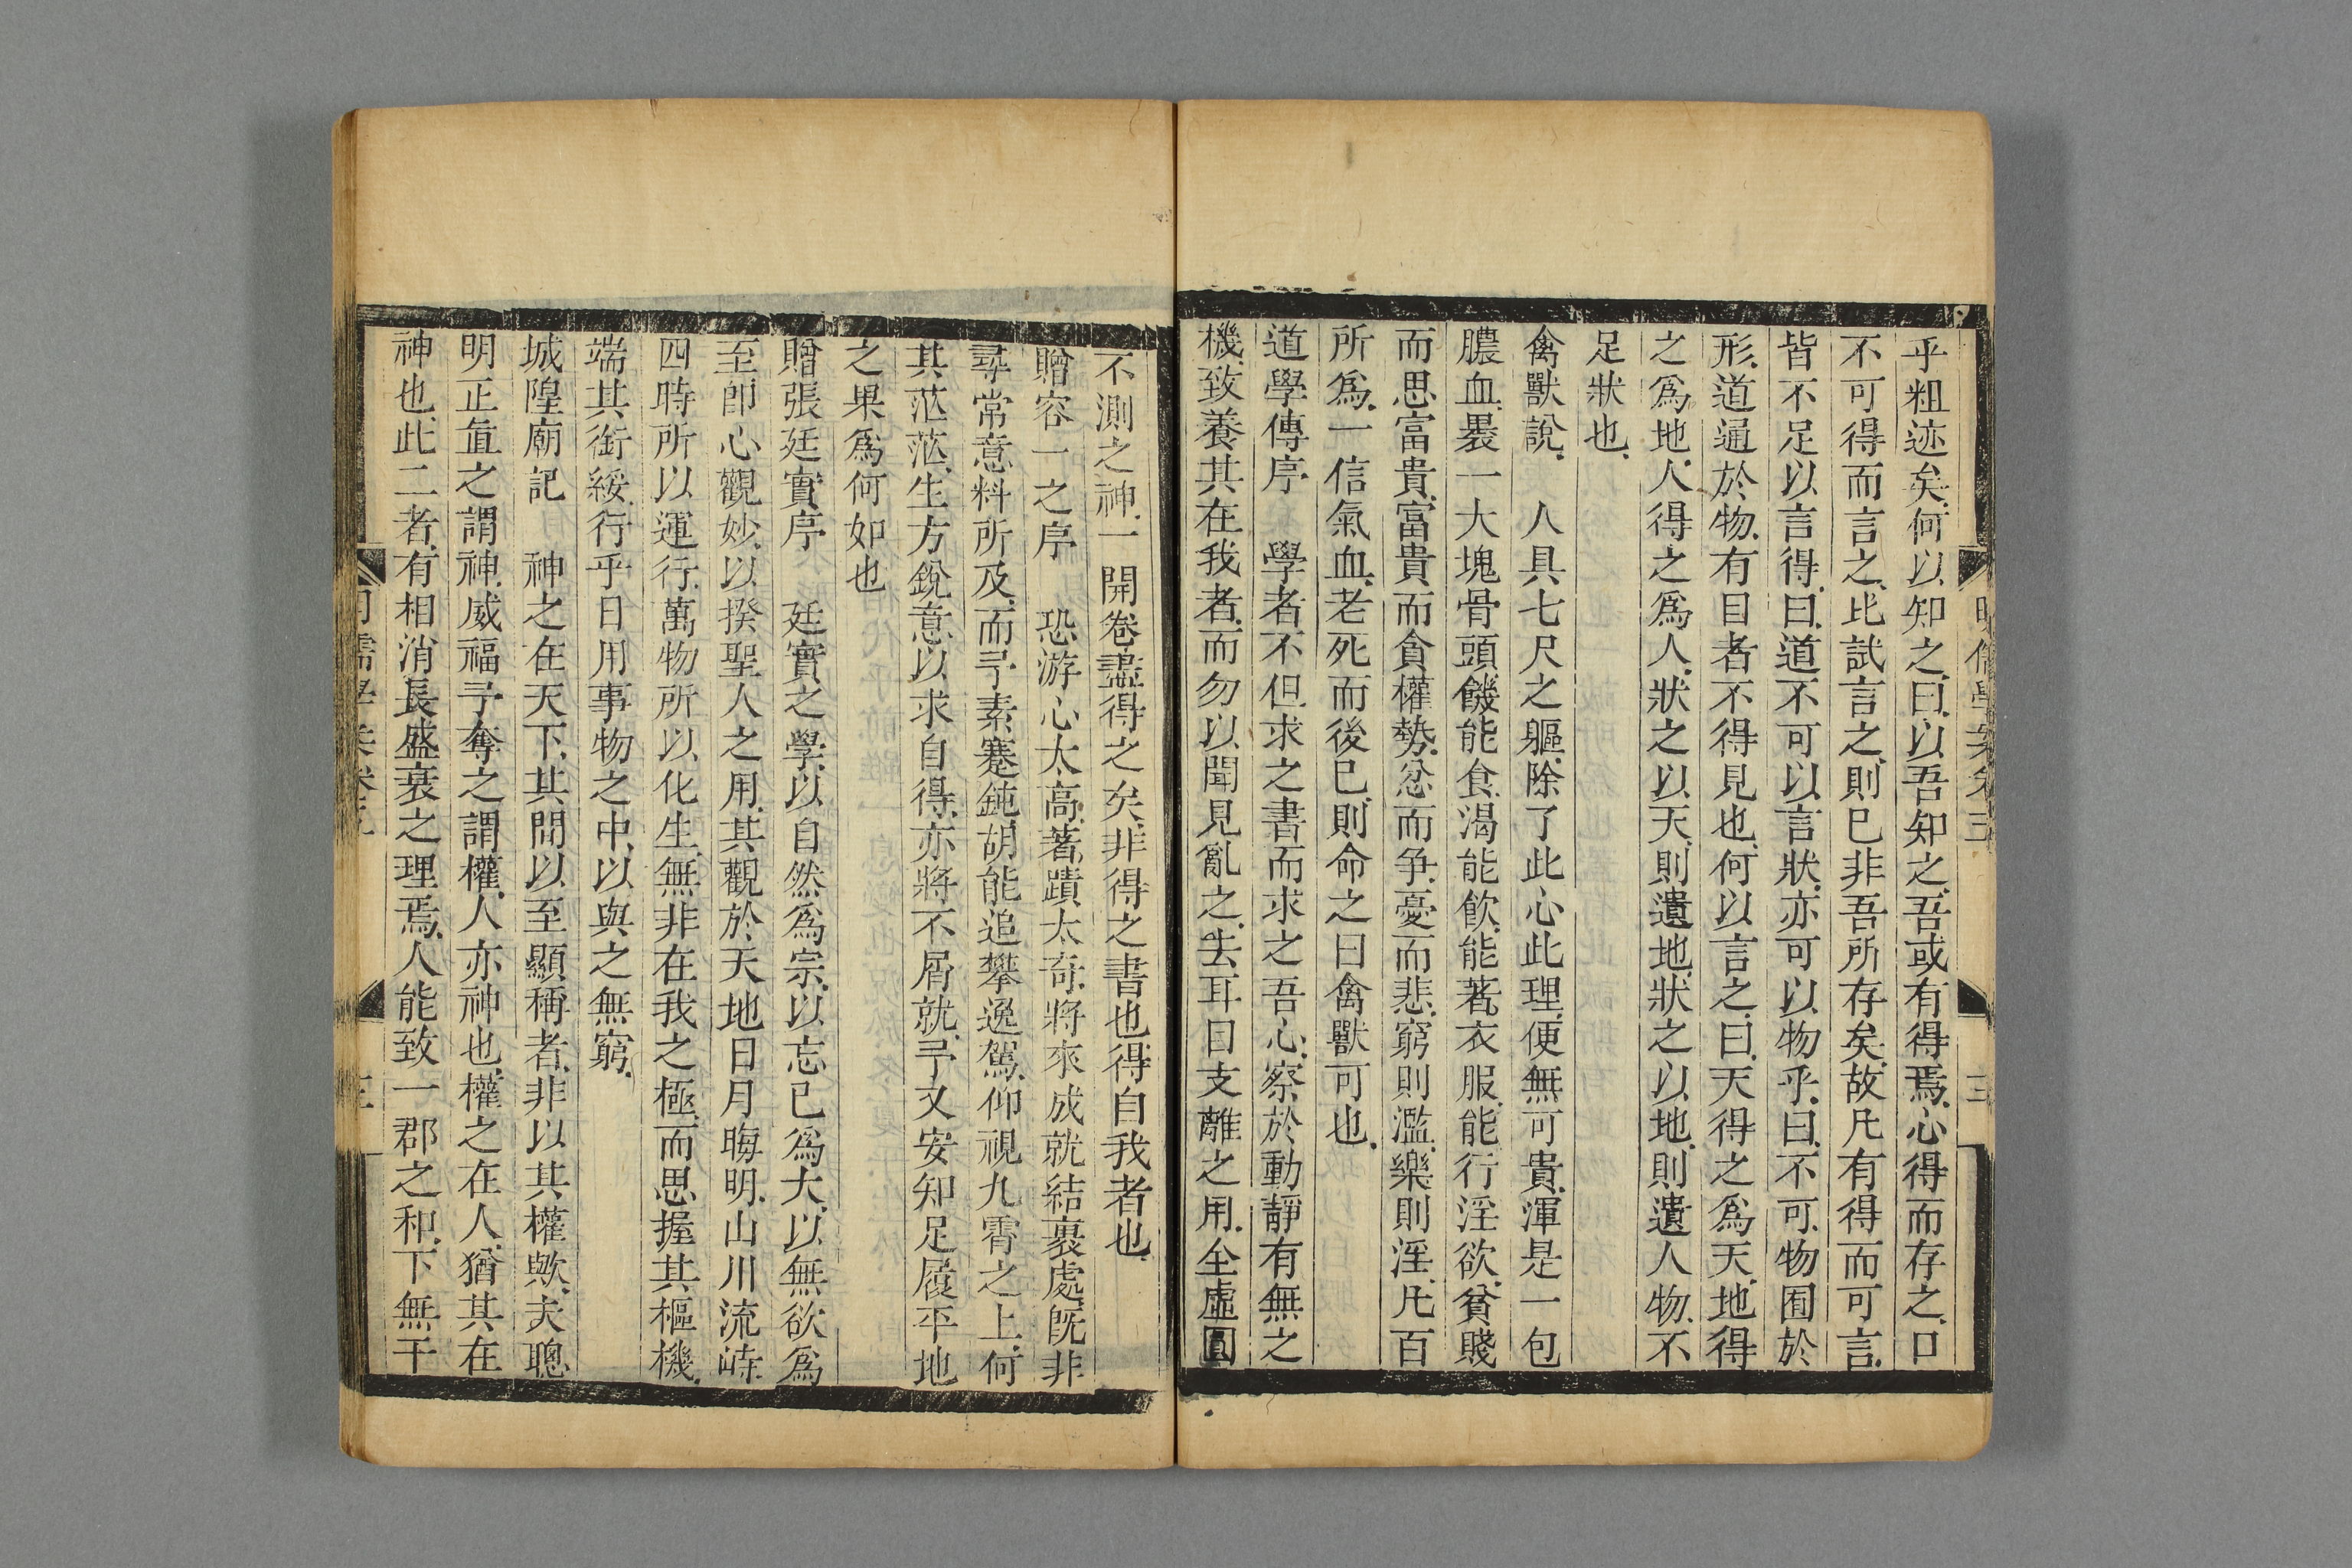 乎粗迹矣、何以知之、曰、以吾知之、吾或有得焉、心得而存之、口
不可得而言之、比試言之、則已非吾所存矣、故凡有得而可言、
皆不足以言得、曰、道不可以言狀、亦可以物乎、曰、不可、物囿於
形、道通於物、有目者不得見也、何以言之、曰、天得之爲天、地得
之爲地、人得之爲人、狀之以天、則遺地、狀之以地、則遺人物、不
足狀也、
禽獸說、 人具七尺之軀、除了此心此理、便無可貴、渾是一包
膿血、裹一大塊骨頭、饑能食、渴能飲、能著衣服、能行淫欲、貧賤
而思富貴、富貴而貪權勢、忿而爭、憂而悲、窮則濫、樂則淫、凡百
所爲、一信氣血、老死而後已、則命之曰禽獸可也、
道學傳序 學者不但求之書而求之吾心、察於動靜有無之
機、致養其在我者、而勿以聞見亂之、去耳目支離之用、全虛圓
不測之神、一開卷盡得之矣、非得之書也、得自我者也、
贈容一之序 恐游心太高、著蹟太奇、將來成就結裹處、旣非
尋常意料所及、而予素蹇鈍、胡能追攀逸駕、仰視九霄之上、何
其茫茫、生方銳意以求自得、亦將不屑就、予又安知足履平地
之果爲何如也
贈張廷實序 廷實之學、以自然爲宗、以忘已爲大、以無欲爲
至、卽心觀妙、以揆聖人之用、其觀於天地日月晦明、山川流峙、
四時所以運行、萬物所以化生、無非在我之極、而思握其樞機、
端其銜綏、行乎日用事物之中、以與之無窮、
城隍廟記 神之在天下、其間以至顯稱者、非以其權歟、夫聰
明正直之謂神、威福予奪之謂權、人亦神也、權之在人、猶其在
神也、此二者、有相消長盛衰之理焉、人能致一郡之和、下無干